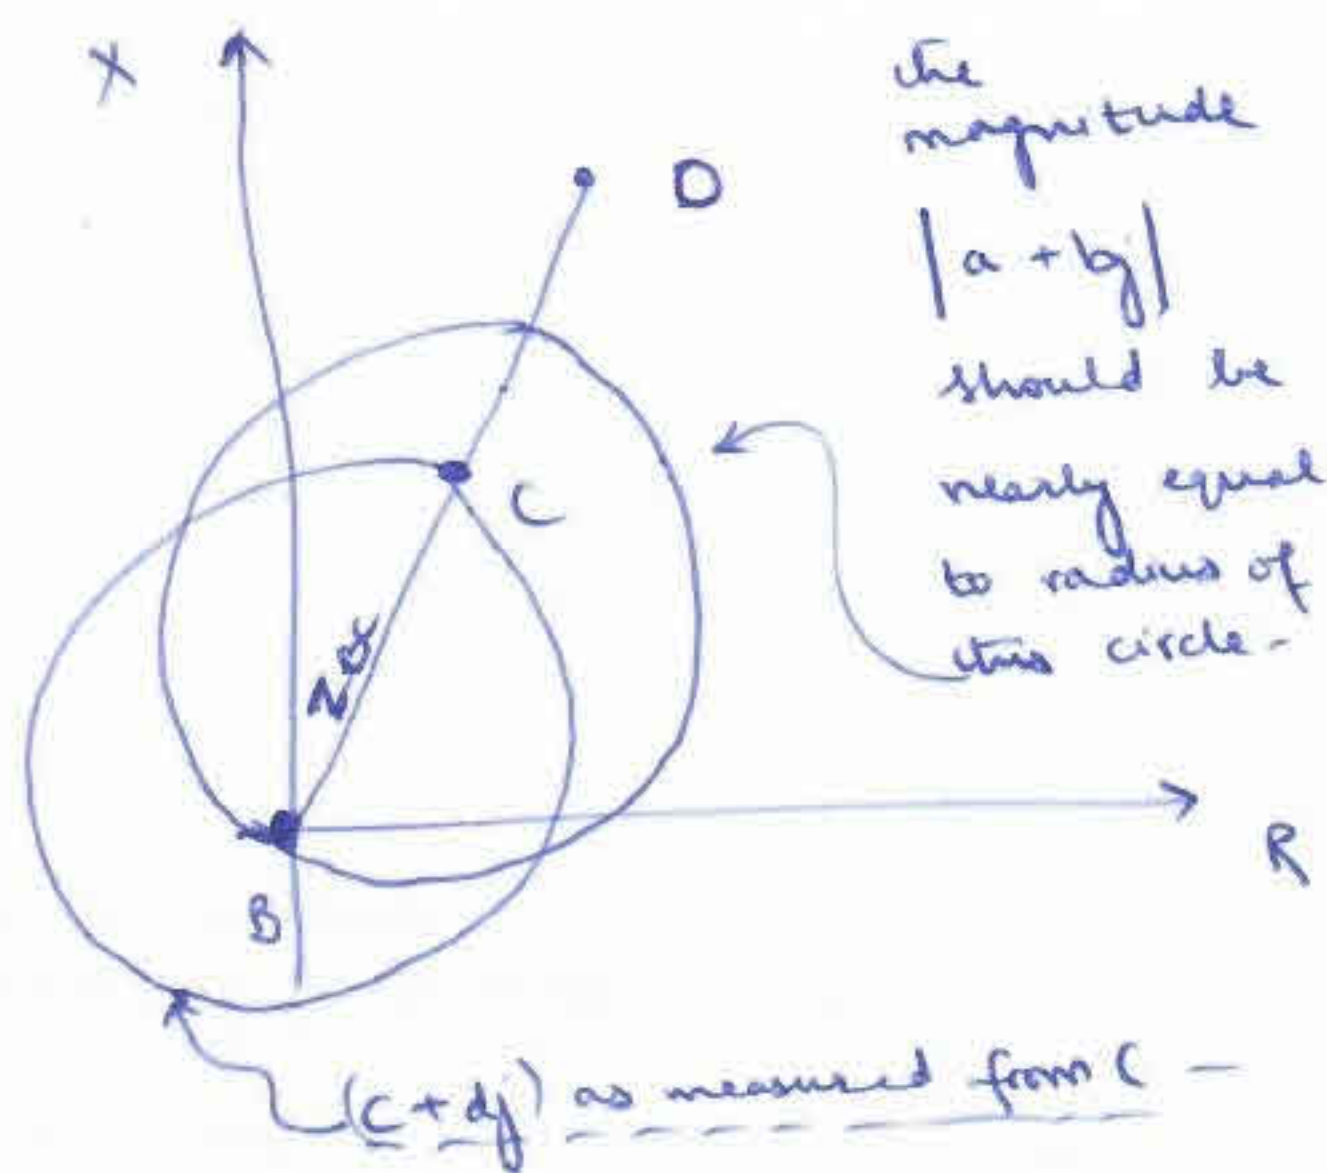 X
the
magnitude
D
|a + bj|
should be
nearly equal
to radius of
this circle-
C
R
B
(c + dj) as measured from C -